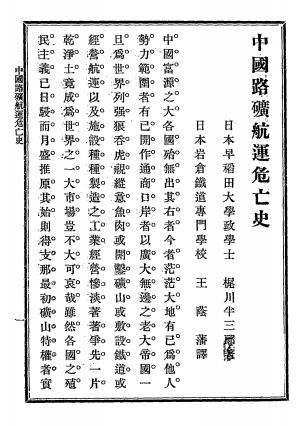 中國路礦航運危亡史
日本早稻田大學政學士 梶川半三郎著
日本岩倉鐵道專門學校 王蔭藩譯
中國富源之大各國殆無出其右者今者茫茫大地有已爲他人
勢力範圍者有已開作通商口岸者以廣大無邊之老大帝國一
旦爲世界列强狼吞虎視縱意魚肉或開鑿礦山或敷設鐵道或
經營航運以及施設種種製造之工業經營慘淡著著爭先一片
乾淨土竟成爲世界之一大市場豈不大可哀哉雖然各國之殖
民主義已日唇而月盛推原其始則得支那最初礦山特權者實
中國路礦航運危亡史
一